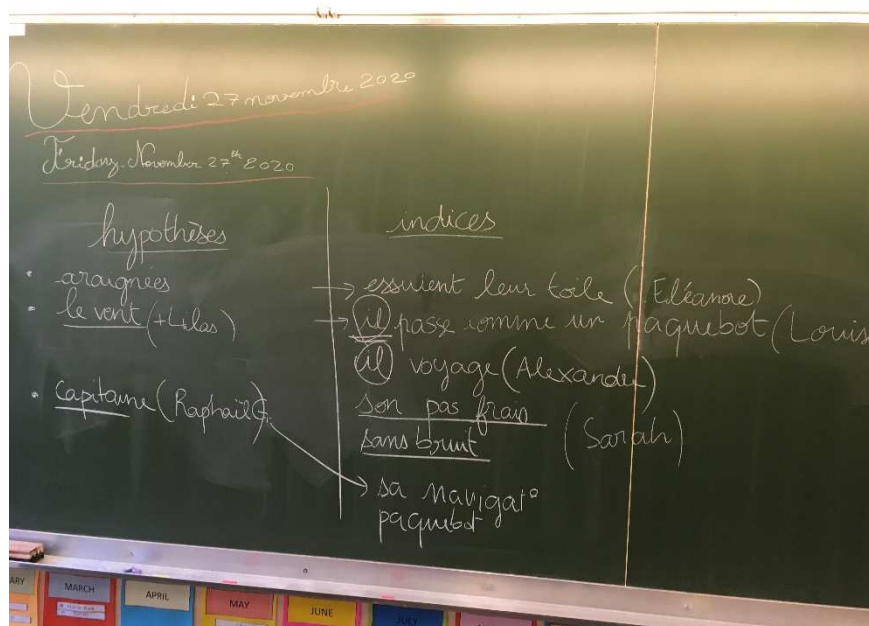 Vendredi 27 novembre 2020
Friday November 27th 2020
hypothèses
• araignées
• le vent (+Lilas)
• capitaine (Raphaël G.)
indices
→ essuient leur toile (Eléanore)
→ il passe comme un paquebot (Louis
il voyage (Alexandre)
son pas frais
sans bruit (Sarah)
→ sa navigat°
paquebot
ARY
MARCH
APRIL
MAY
JUNE
JULY